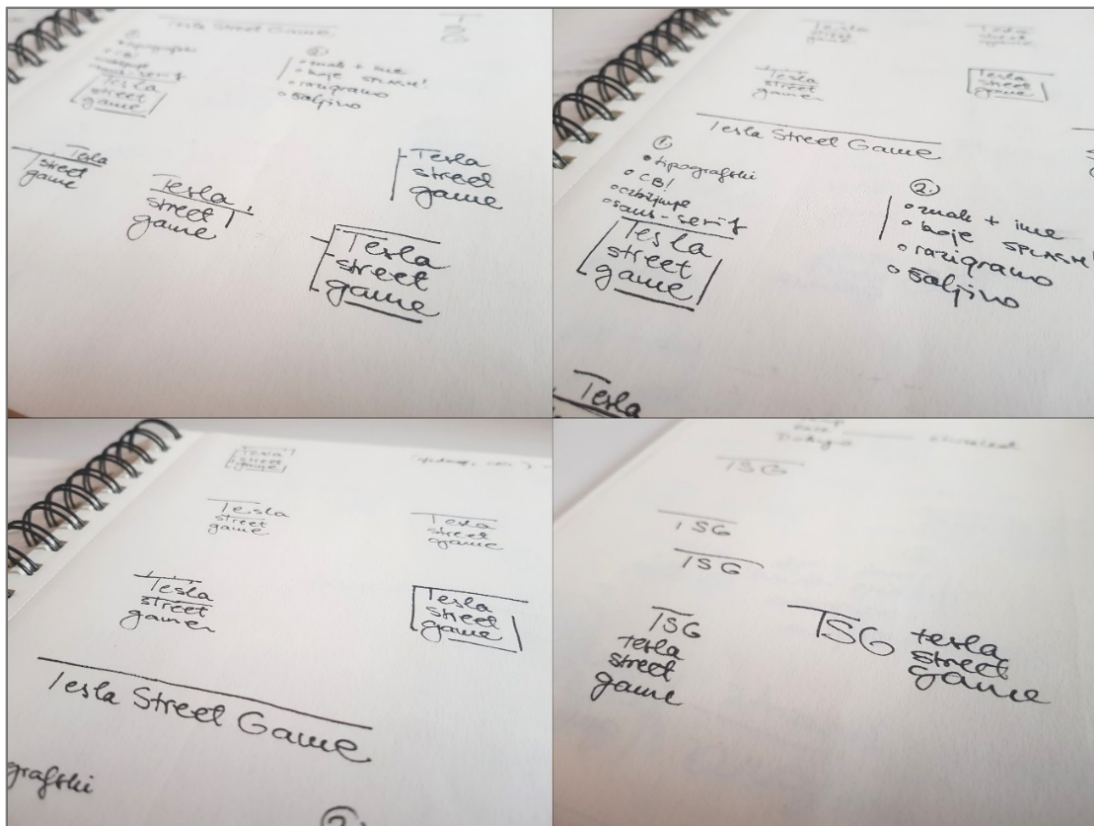 Tesla Street Game
①
• tipografski
• CB!
• sans-serif
Tesla
street
game
②
• znak + ime
• boje SPLASH!
• razigrano
• šaljivo
Tesla
street
game
Tesla
street
game
Tesla
street
game
Tesla
street
game
Tesla
street
game
Tesla
street
game
Tesla
street
gamer
Tesla
street
game
Tesla Street Game
①
• tipografski
• CB!
• ozbiljnije
• sans-serif
Tesla
street
game
②
• znak + ime
• boje SPLASH!
• razigrano
• šaljivo
Tesla
Tesla
street
game
Tesla
street
game
Tesla
street
game
Tesla
street
gamer
Tesla
street
game
Tesla Street Game
grafski
②
TSG
TSG
TSG
TSG
tesla
street
game
TSG
tesla
street
game